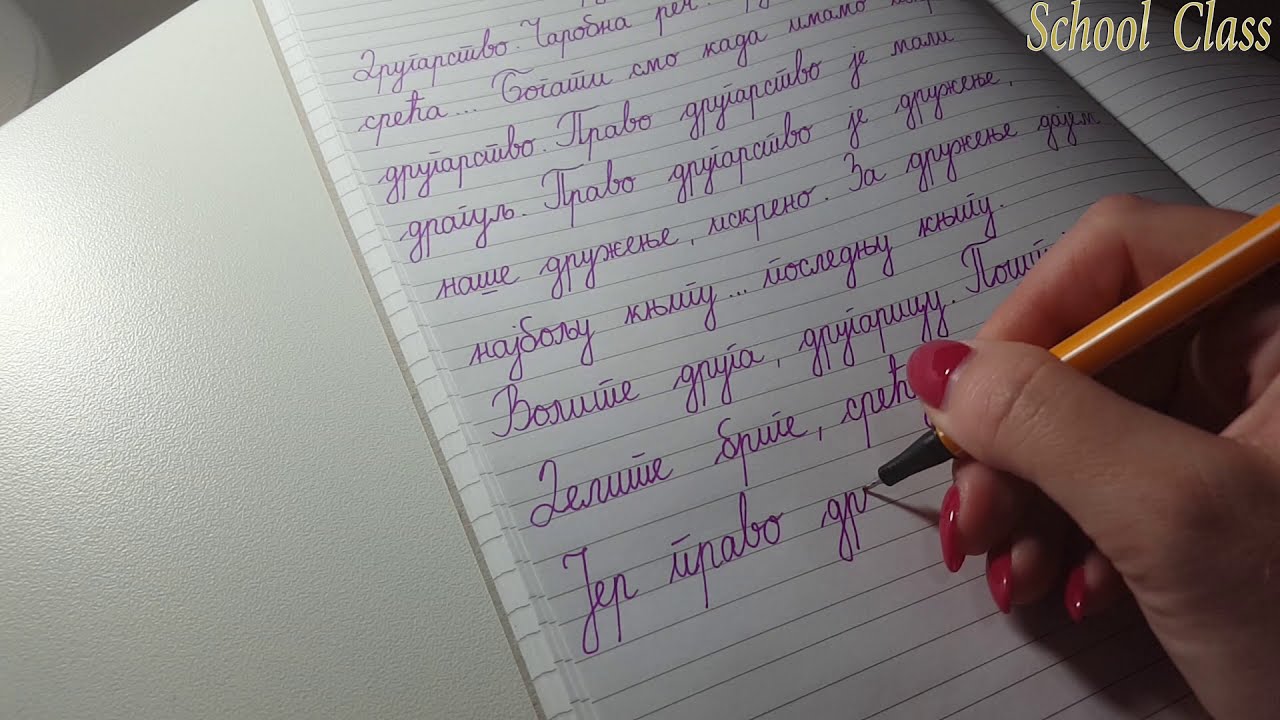 School Class
Другарство. Чаробна реч.
срећа... Богати смо када имамо
другарство. Право другарство је мали
драгуљ. Право другарство је дружење,
наше дружење, искрено. За дружење дајем
најбољу књигу... последњу књигу.
Волите друга, другарицу.
Делите бриге,
Јер право др